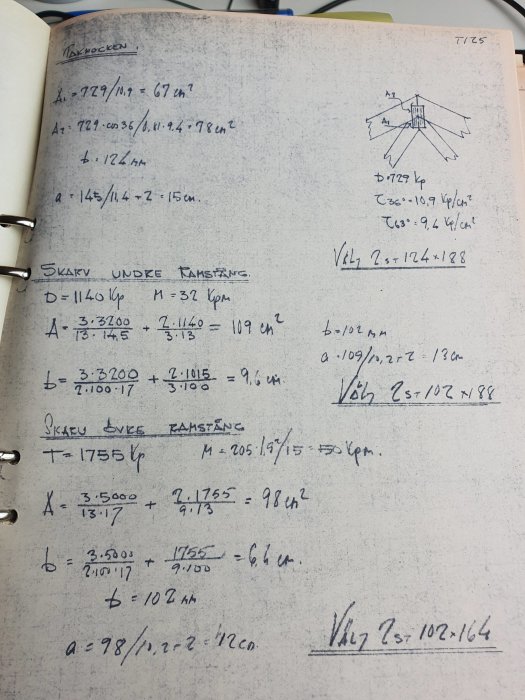 T125
TAKNOCKEN.
A₁ = 729/10,9 = 67 cm²
A₂ = 729·cos36/0,81·9.4 = 78 cm²
b = 124 mm
a = 145/11,4 + 2 = 15 cm.
A₂
A₁
D = 729 Kp
τ36° = 10,9 Kp/cm²
τ63° = 9,4 Kp/cm²
VÄLJ 2 ST 124×188
SKARV UNDRE RAMSTÅNG.
D = 1140 Kp M = 32 Kpm
A = 3·3200/13·14.5 + 2·1140/3·13 = 109 cm²
b = 3·3200/2·100·17 + 2·1015/3·100 = 9,6 cm
b = 102 mm
a = 109/10,2 + 2 = 13 cm
VÄLJ 2 ST 102×188
SKARV ÖVRE RAMSTÅNG
T = 1755 Kp M = 205·1,9²/15 = 50 Kpm.
A = 3·5000/13·17 + 2·1755/9·13 = 98 cm²
b = 3·5000/2·100·17 + 1755/9·100 = 6,4 cm.
b = 102 mm
a = 98/10,2 + 2 = 12 cm
VÄLJ 2 ST 102×164